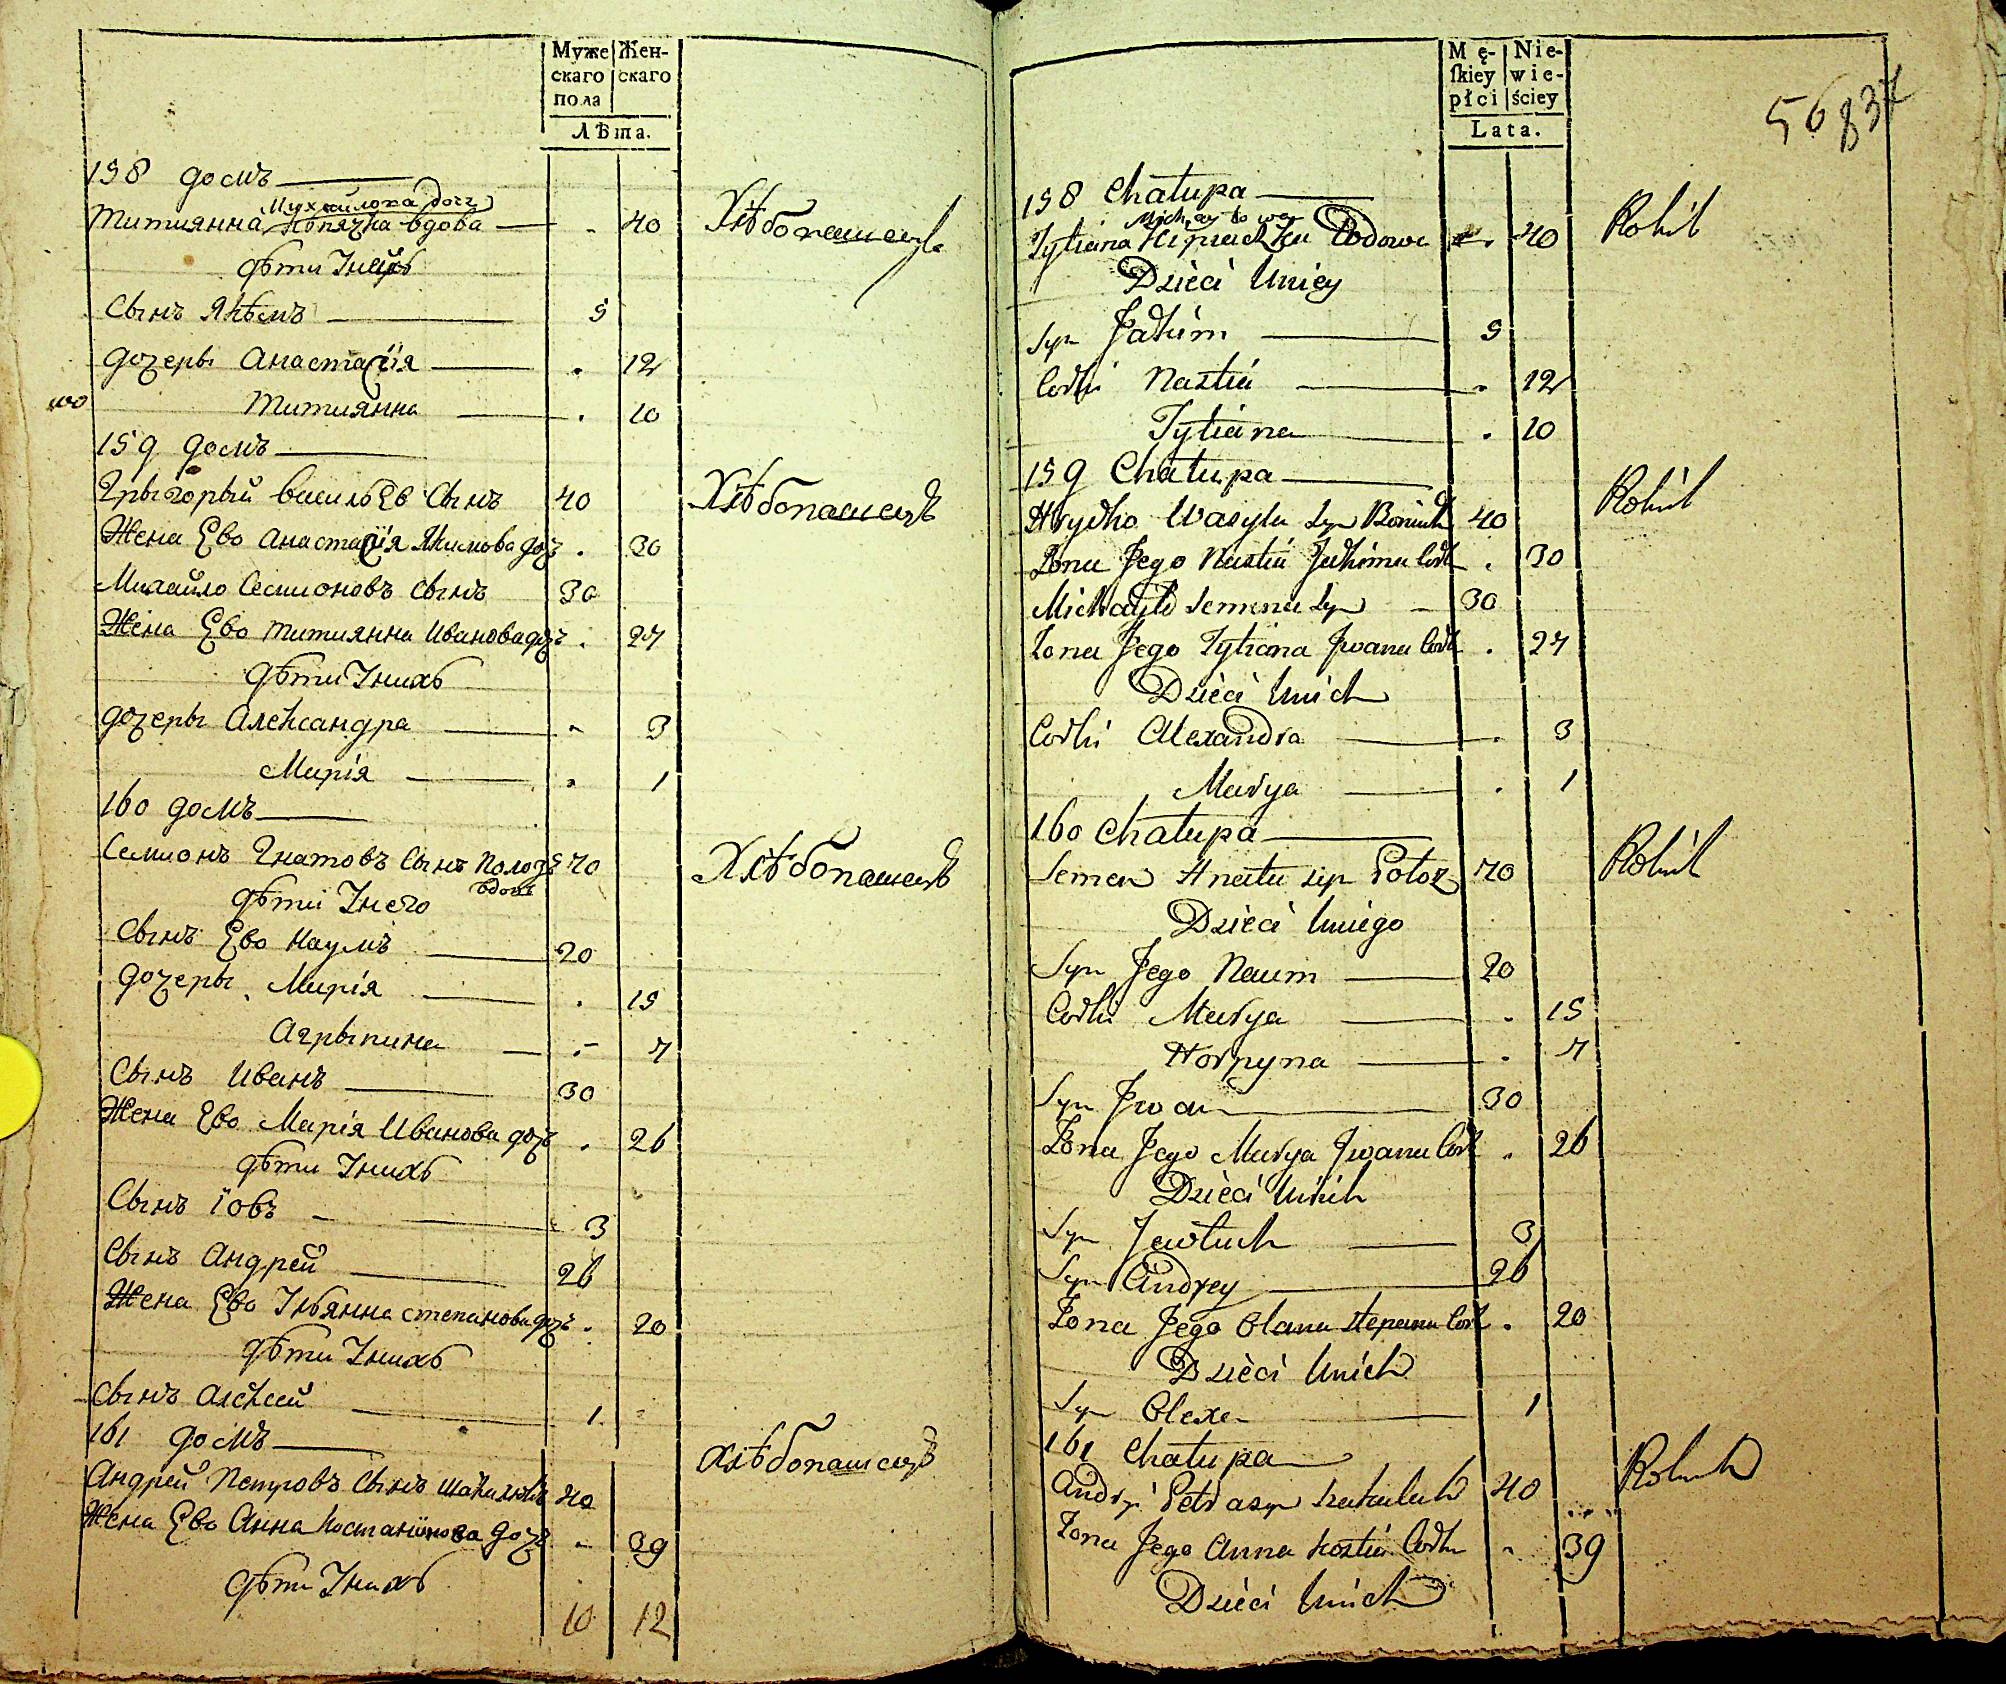 Муже
скаго
пола
Жен-
скаго
Лѣта.
158 домъ
Михайлова доч
Титиянна вдова . 40 Хлѣбопашецъ
дѣти Унейъ
Сынъ Якѣмъ 9
дочеры Анастасїя . 12
Титиянна . 10
159 домъ
Грыгорый васильев Сынъ 40 Хлѣбопашецъ
Жена Ево Анастасїя Якимова доч . 30
Михайло Семионовъ Сынъ 30
Жена Ево Титиянна Иванова доч . 27
дѣти Унихъ
дочеры Александра - 3
Марія . 1
160 домъ
Семионъ Гнатовъ Сынъ Полозъ 70 Хлѣбопашецъ
вдовъ
дѣти Унего
Сынъ Ево Наумъ 20
дочеры Марія . 15
Агрыпина . 7
Сынъ Иванъ 30
Жена Ево Марія Иванова доч . 26
дѣти Унихъ
Сынъ Іовъ 3
Сынъ Андрей 26
Жена Ево Ульянна степанова доч . 20
дѣти Унихъ
Сынъ Алѣксей 1
161 домъ
Андрей Петровъ Сынъ 40 Хлѣбопашецъ
Жена Ево Анна Костантинова доч - 39
дѣти Унихъ
10 12
Mę-
ſkiey
płci
Nie-
wie-
ściey
Lata.
56 837
158 Chałupa
Tytiana Wdowa . 40 Rolnik
Dzieci Uniey
Syn Jakim 9
Corki Nastia . 12
Tytiana . 10
159 Chałupa
Hryćko Wasyla Syn 40 Rolnik
Zona Jego Nastia Jakima Cork . 30
Michayło Semena Syn 30
Zona Jego Tytiana Jwana Cork . 27
Dzieci Unich
Corki Alexandra . 3
Marya . 1
160 Chałupa
Semen Hnata syn Połoz 70 Rolnik
Dzieci Uniego
Syn Jego Naum 20
Corki Marya . 15
Horpyna . 7
Syn Jwan 30
Zona Jego Marya Jwana Cork . 26
Dzieci Unich
Syn Jewtuch 3
Syn Andrey 26
Zona Jego Olana Stepana Cork . 20
Dzieci Unich
Syn Olexa 1
161 Chałupa
Andry Petra syn 40 Rolnik
Zona Jego Anna Kostia Corka . 39
Dzieci Unich